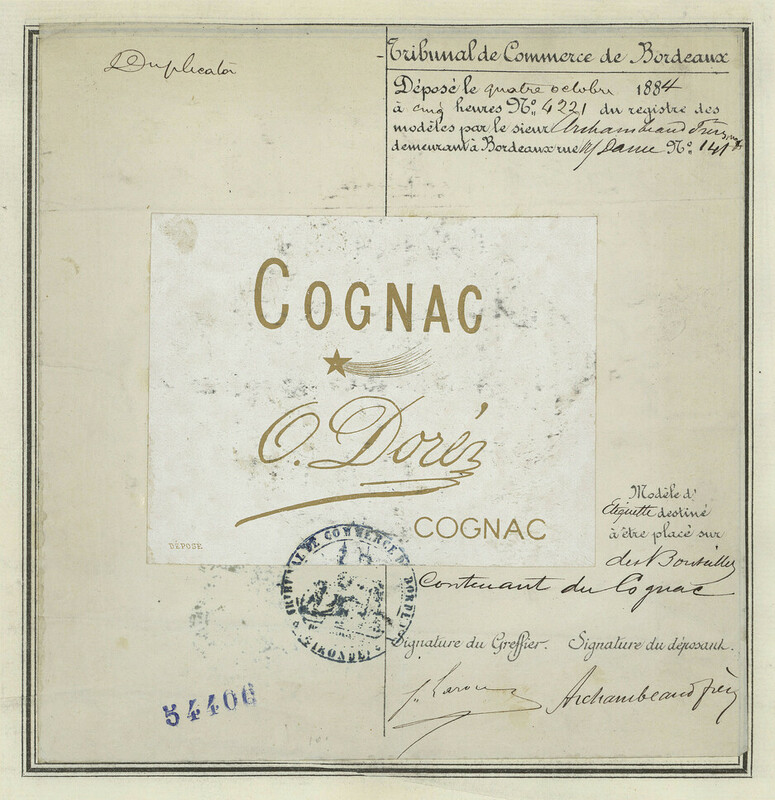 Duplicata
Tribunal de Commerce de Bordeaux
Déposé le quatre octobre 1884
à cinq heures Nº 4221 du registre des
modèles par le sieur Archambeaud Frères
demeurant à Bordeaux rue Dame Nº 141
COGNAC
O. Doréz
COGNAC
DÉPOSÉ
Modèle d'
Etiquette destiné
à être placé sur
des Bouteilles
Contenant du Cognac
TRIBUNAL DE COMMERCE DE BORDEAUX
(GIRONDE)
Signature du Greffier. Signature du déposant.
Archambeaud frères
54406